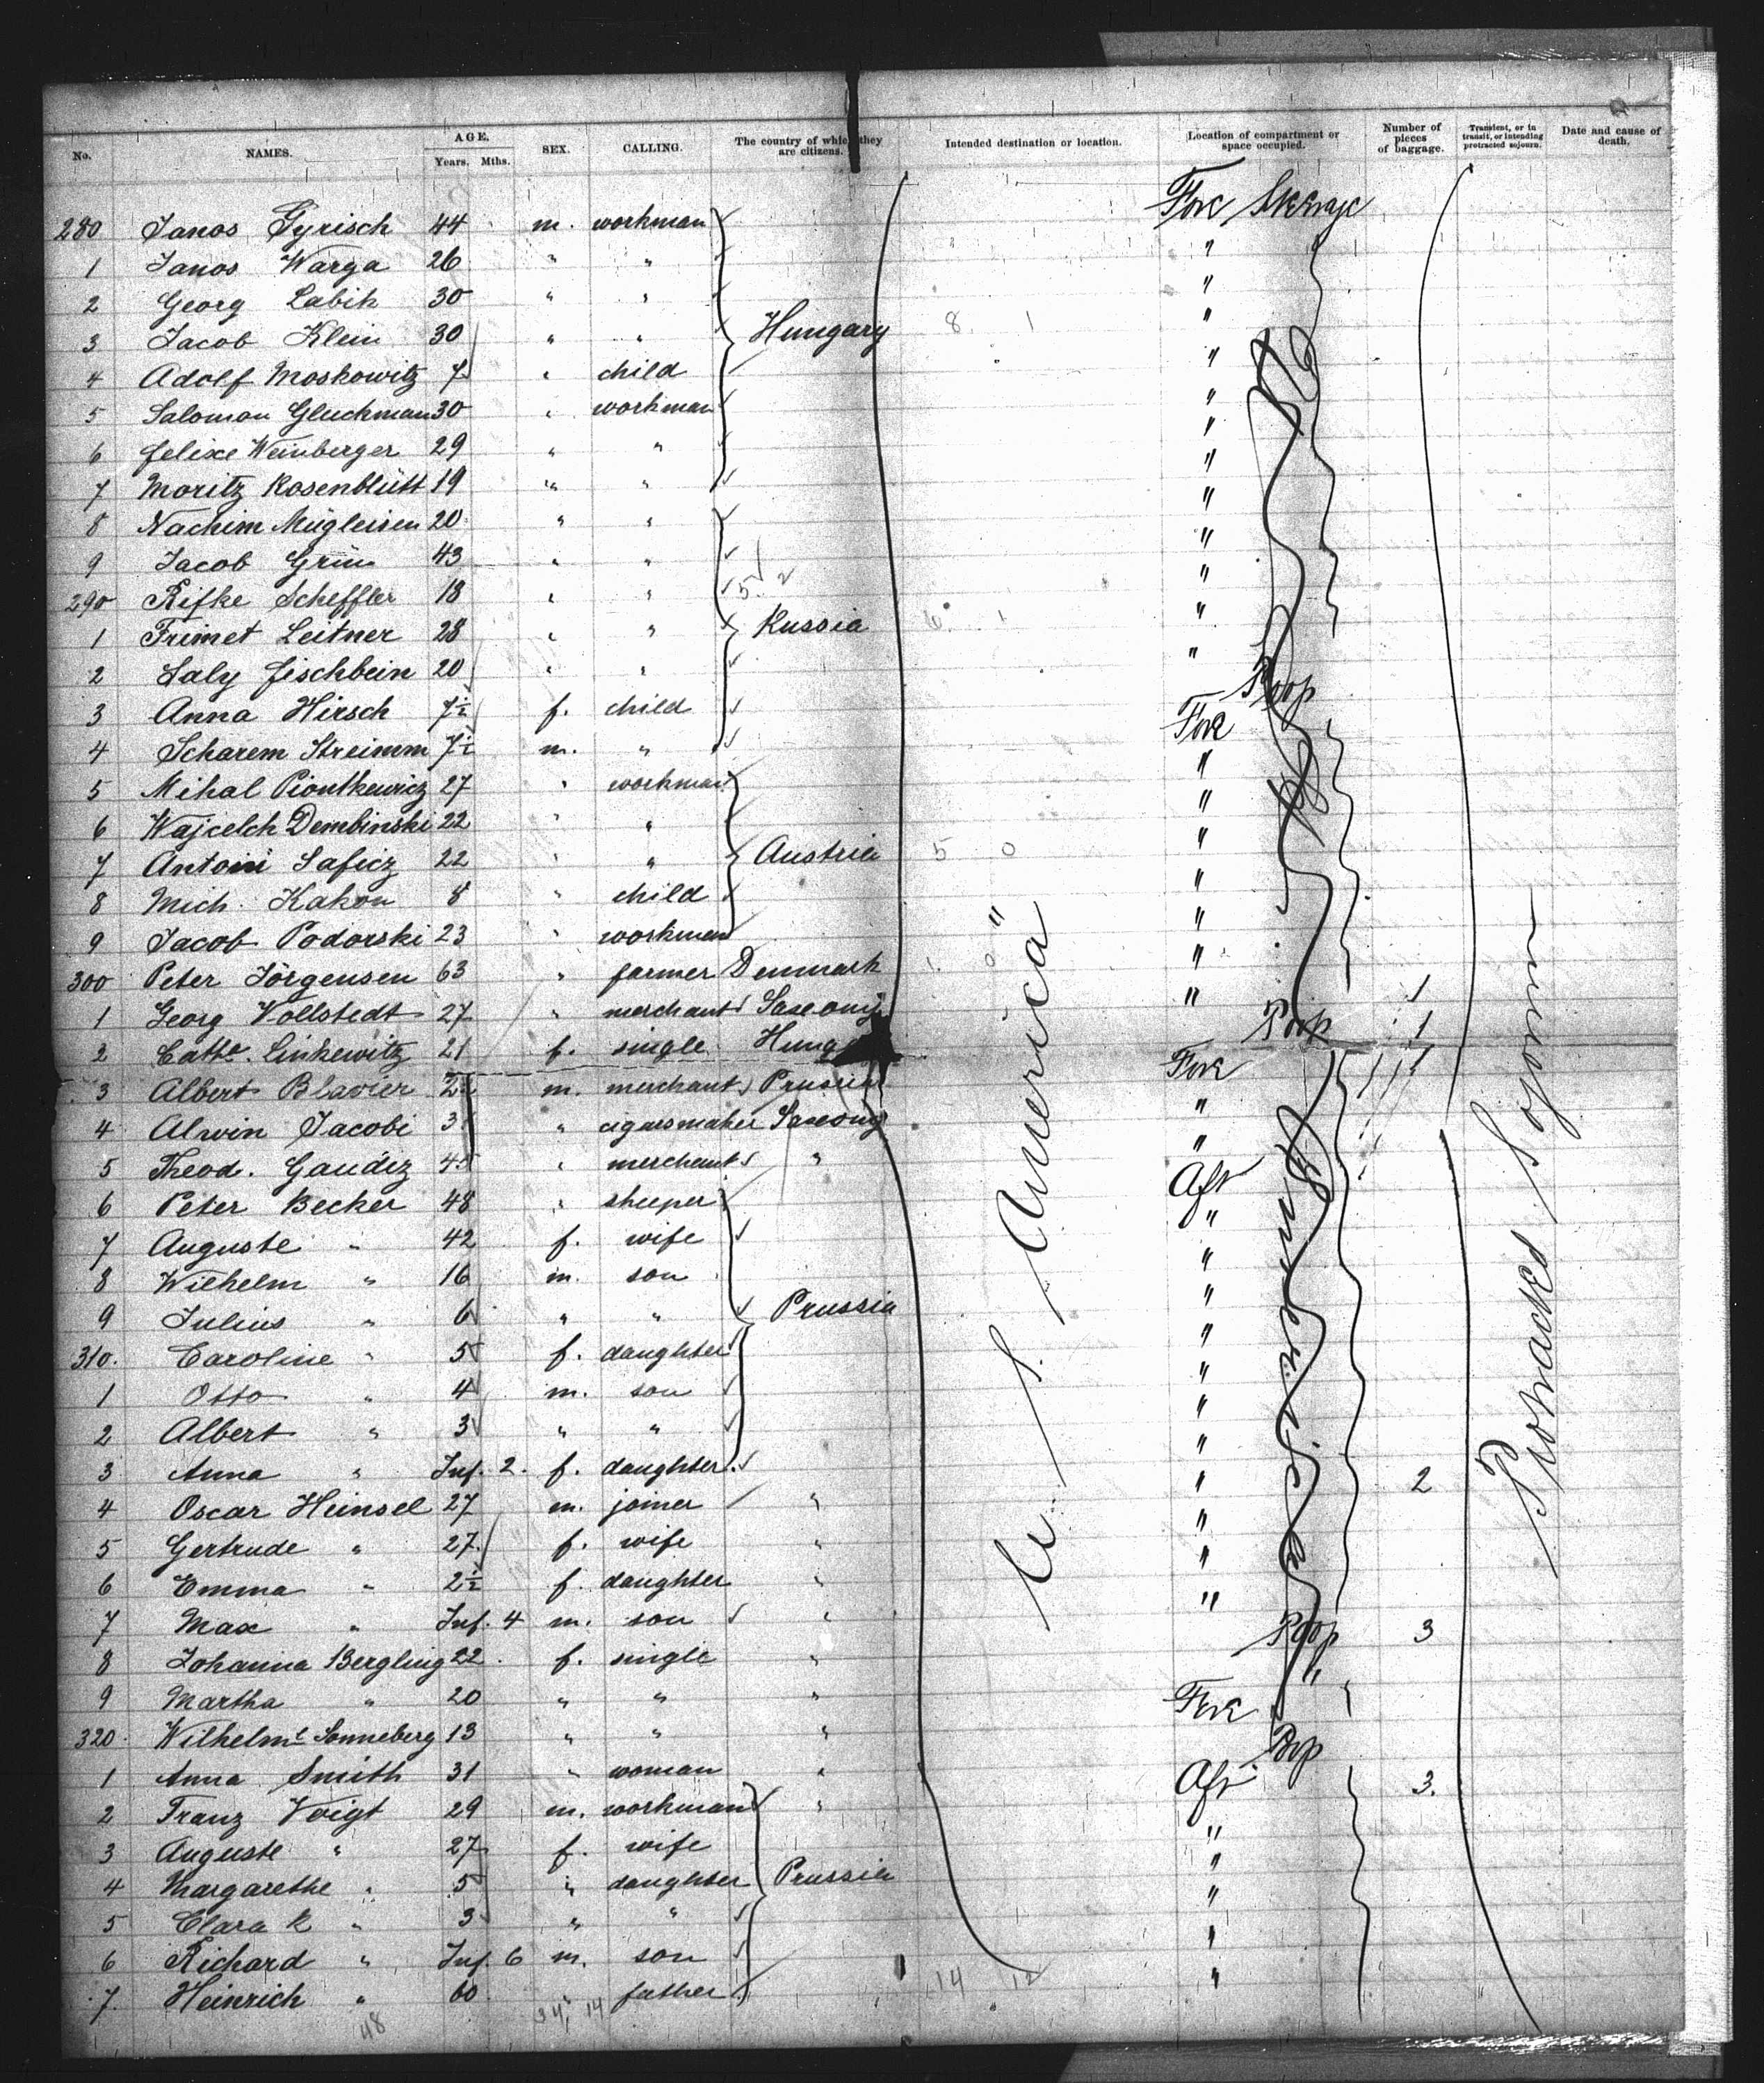 No. NAMES. AGE. Years. Mths. SEX. CALLING. The country of which they are citizens. Intended destination or location. Location of compartment or space occupied. Number of pieces of baggage. Transient, or in transit, or intending protracted sojourn. Date and cause of death.
280 Janos Gyrisch 44 m. workman Fore Steerage
1 Janos Warga 26 " " "
2 Georg Labik 30 " " "
3 Jacob Klein 30 " " Hungary 8 1 "
4 Adolf Moskowitz 7 " child "
5 Salomon Gluckman 30 " workman "
6 Felixe Weinberger 29 " " "
7 Moritz Rosenblütt 19 " " "
8 Nachim Mügleisen 20 " " "
9 Jacob Grün 43 " " "
290 Rifke Scheffler 18 " " 5 2 "
1 Frimet Leitner 28 " " Russia 6 1 "
2 Saly Fischbein 20 " " "
3 Anna Hirsch 7½ f. child Poop
4 Scharem Streimm 7½ m. " Fore
5 Mihal Piontkewicz 27 " workman "
6 Wajcelch Dembinski 22 " " "
7 Antoni Saficz 22 " " Austria 5 0 "
8 Mich. Kakou 8 " child "
9 Jacob Podorski 23 " workman "
300 Peter Jörgensen 63 " farmer Denmark 1 0 "
1 Georg Vollstedt 27 " merchant Saxony " 1
2 Cathe. Linkewitz 21 f. single Hung Poop 1
3 Albert Blavier m. merchant Prussia Fore 1
4 Alwin Jacobi " cigarsmaker Saxony "
5 Theod. Gaudiz 45 " merchant " "
6 Peter Becker 48 " Aft
7 Auguste " 42 f. wife "
8 Wilhelm " 16 m. son "
9 Julius " 6 " " Prussia "
310. Caroline " 5 f. daughter "
1 Otto " 4 m. son "
2 Albert " 3 " " "
3 Anna " Inf. 2. f. daughter "
4 Oscar Heinsel 27 m. joiner " " 2
5 Gertrude " 27 f. wife " "
6 Emma " 2½ f. daughter " "
7 Max " Inf. 4 m. son " "
8 Johanna Bergling 22 f. single " Poop 3
9 Martha " 20 " " " "
320. Wilhelmt Sonneberg 13 " " " Fore
1 Anna Smith 31 " woman " Poop
2 Franz Voigt 29 m. workman " Aft 3.
3 Auguste " 27 f. wife "
4 Margarethe " 5 " daughter Prussia "
5 Clara R " 3 " " "
6 Richard " Inf. 6 m. son "
7. Heinrich " 60 " father 14 12 "
48 34 14
U. S. America "
Protracted Sojourn